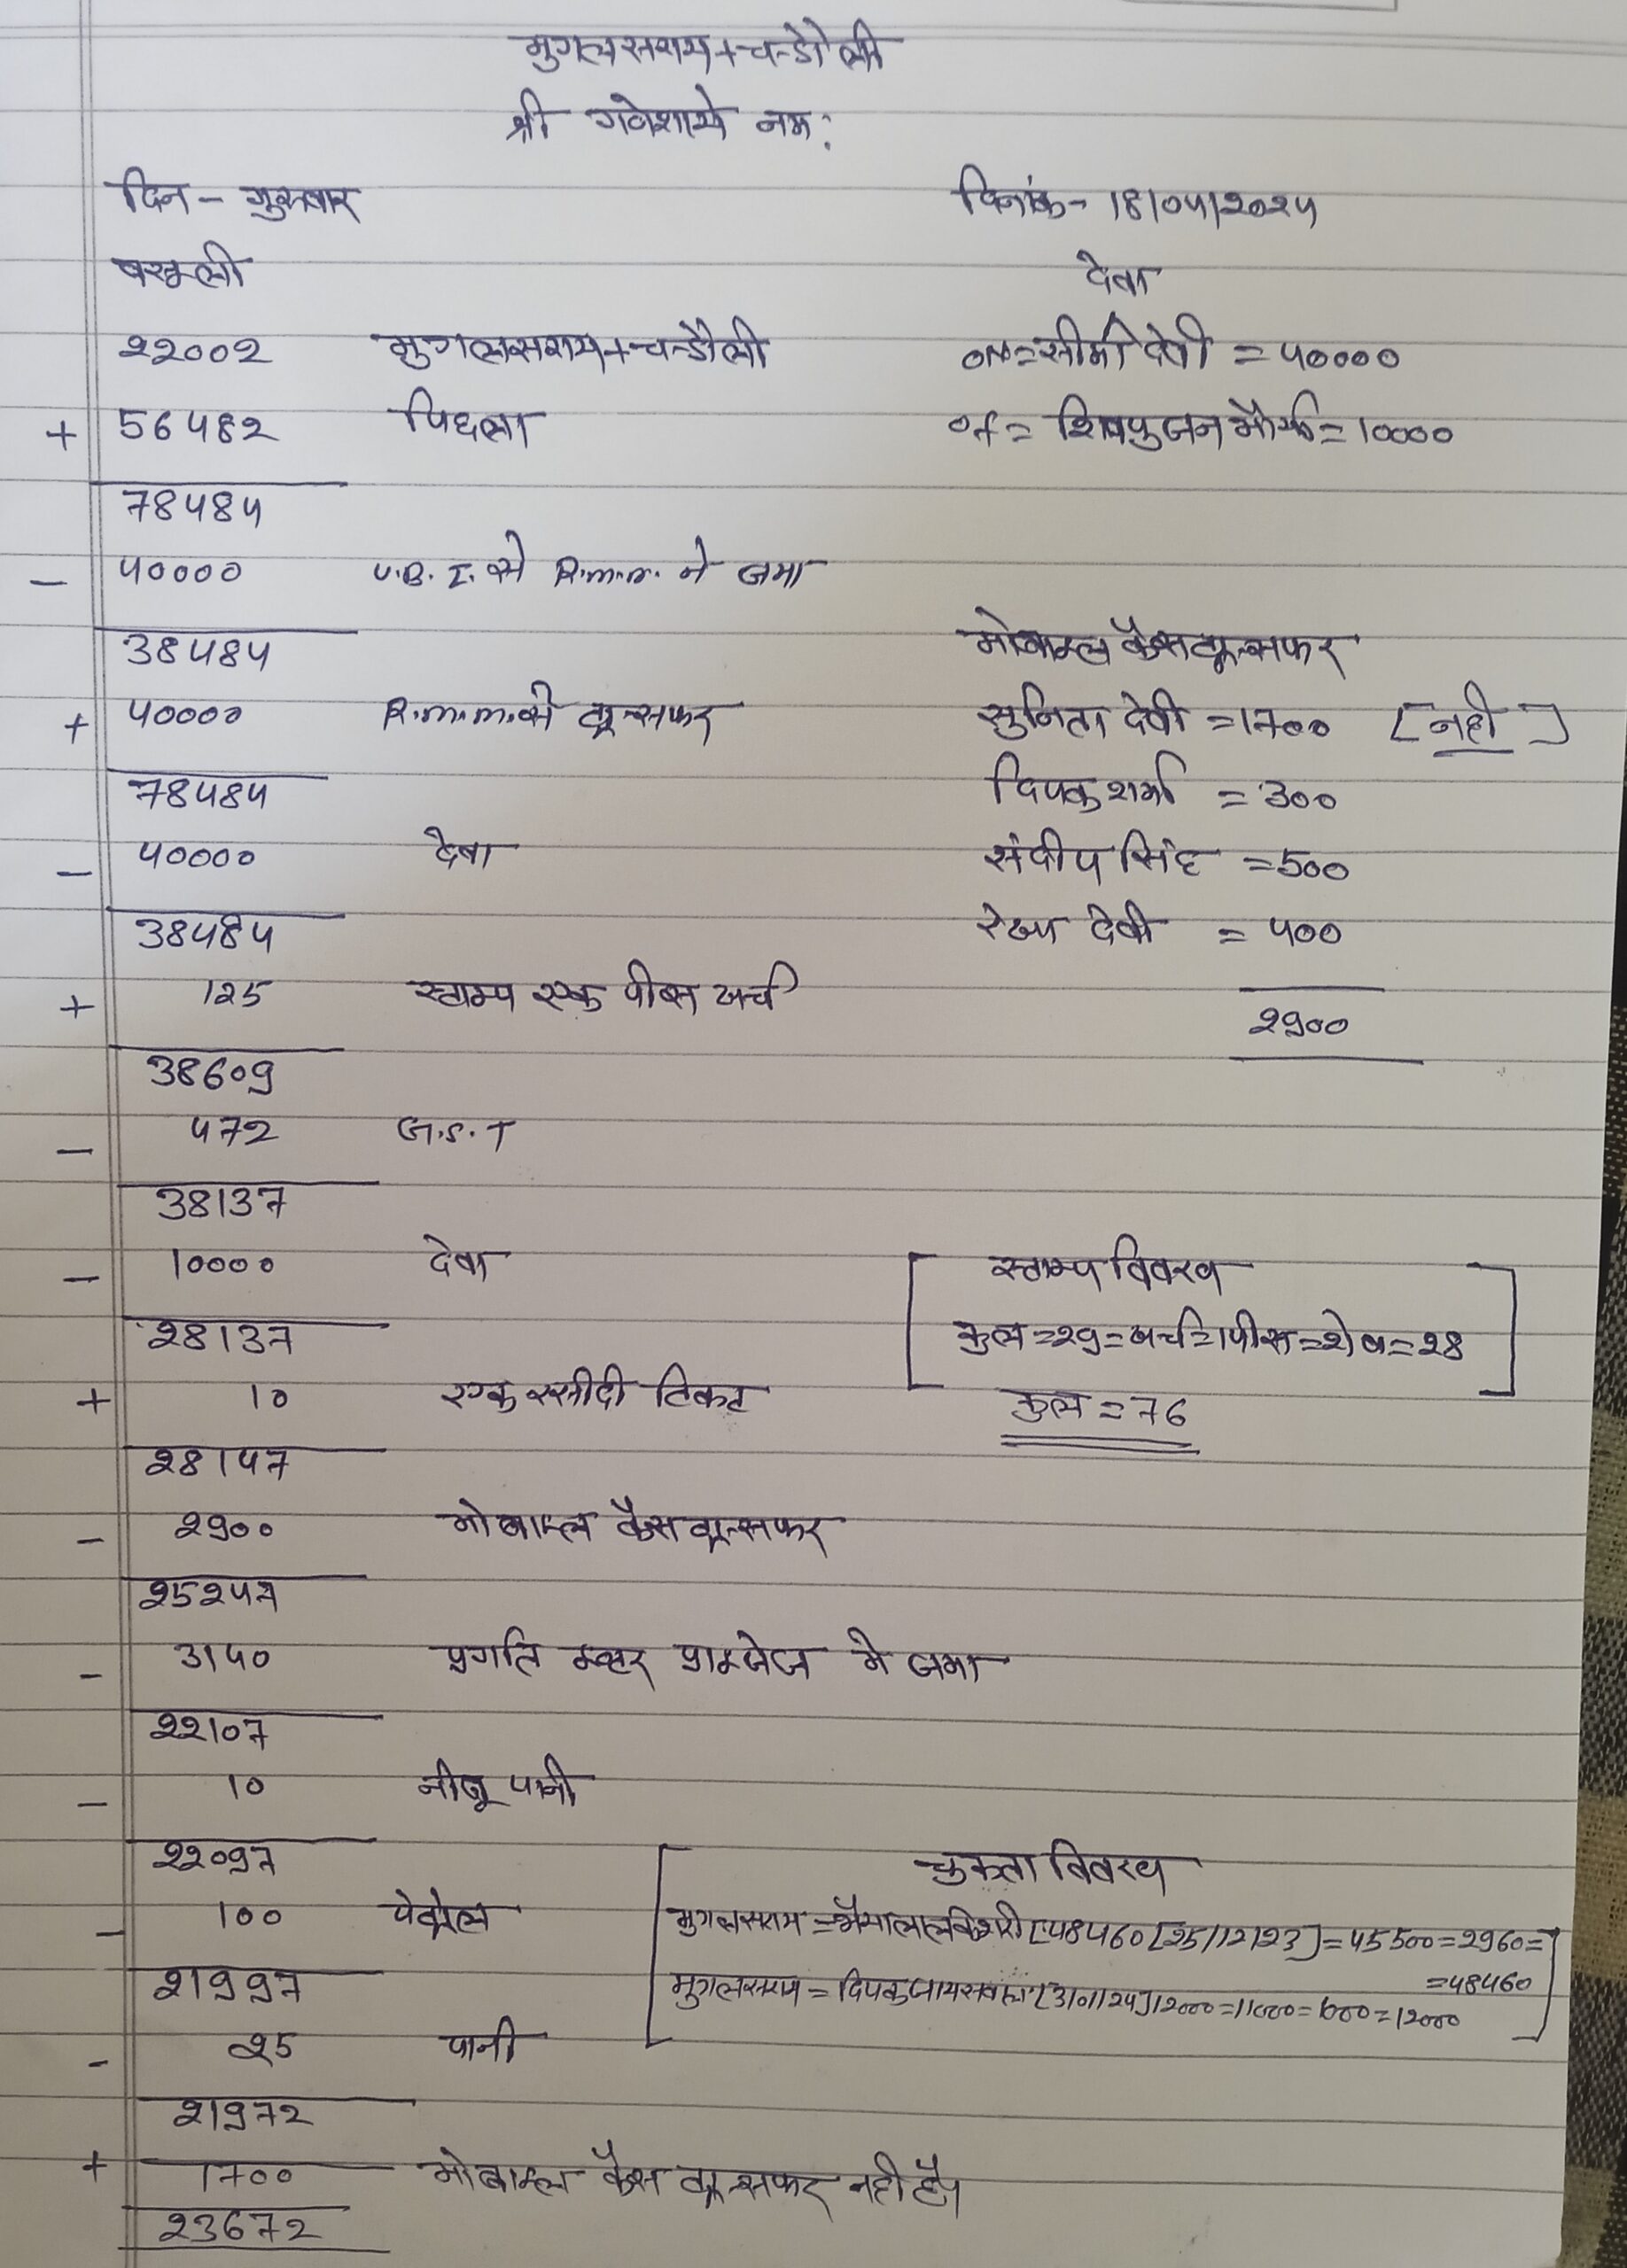 मुगलसराय+चन्डौली
श्री गणेशाये नम:
दिन - गुरुवार दिनांक- 18/04/2024
वसूली देवा
22002 मुगलसराय+चन्डौली on=सीमा देवी = 40000
+ 56482 पिछला of = शिवपुजन मौर्या = 10000
78484
- 40000 U.B.I. से R.m.m. मे जमा
38484 मोबाइल कैस ट्रान्सफर
+ 40000 R.m.m. से ट्रान्सफर सुनिता देवी = 1700 [नही]
78484 दिपक शर्मा = 300
- 40000 देवा संदीप सिंह = 500
38484 रेखा देवी = 400
+ 125 स्टाम्प एक पीस खर्च
2900
38609
- 472 G.S.T
38137
- 10000 देवा [स्टाम्प विवरण
28137 कुल = 29 = खर्च = 1पीस = शेष = 28]
+ 10 एक रसीदी टिकट कुल = 76
28147
- 2900 मोबाइल कैस ट्रान्सफर
25247
- 3140 प्रगति इन्टर प्राइजेज मे जमा
22107
- 10 नीबू पानी
22097 [चुकता विवरण
- 100 पेट्रोल मुगलसराय = भैयालाल केशरी [48460 [25/12/23] = 45500 = 2960 =
21997 = 48460
मुगलसराय = दिपक जायसवाल [3/01/24] 12000 = 11000 = 1000 = 12000]
- 25 पानी
21972
+ 1700 मोबाइल कैस ट्रान्सफर नही है।
23672